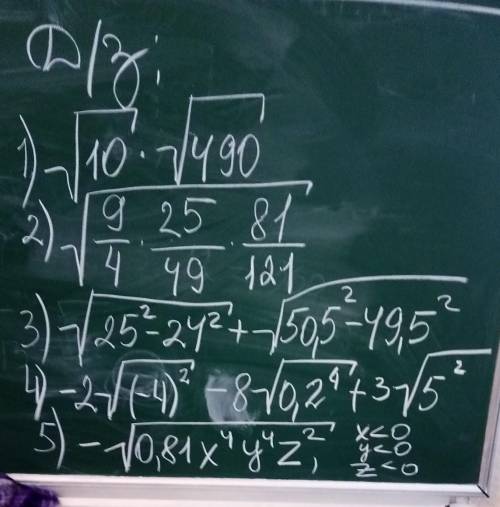 Д/з:
1) √10 · √490
2) √(9/4 · 25/49 · 81/121)
3) √(25² - 24²) + √(50,5² - 49,5²)
4) -2√(-4)² - 8√0,2⁴ + 3√5²
5) -√(0,81x⁴y⁴z²), x<0
y<0
z<0